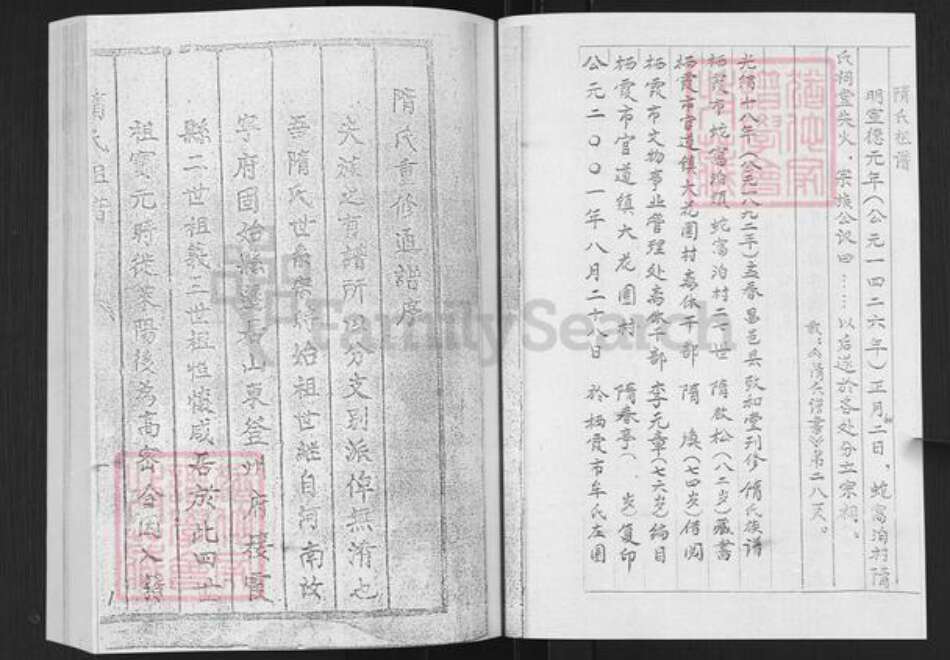 隋氏祖谱
明宣德元年(公元一四二六年)正月初二日,蛇窝泊村隋
氏祠堂失火,宗族公议曰……以后迁於各处分立宗祠。
载:《隋氏谱书》第二八一页。
光绪十八年(公元一八九二年)孟春昌邑县致和堂刊修隋氏族谱
栖霞市蛇窝泊镇蛇窝泊村二一世 隋欣松(八二岁)藏书
栖霞市官道镇大花園村离休干部 隋焕(七四岁)借阅
栖霞市文物事业管理处离休干部 李元章(七六岁)编目
栖霞市官道镇大花園村 隋春亭( 岁)复印
公元二〇〇一年八月二十八日 於栖霞市牟氏庄園
隋氏重修通譜序
夫族之有譜所以分支別派俾無淆也
吾隋氏世系 始祖世继自河南故
寧府固始縣遷居山東登州府棲霞
縣二世祖義三世祖恒懷咸居於此四世
祖寶元時徙萊陽後為高密令因入籍
隋氏祖谱
1
FamilySearch